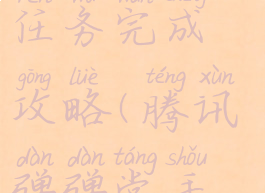 任务完成
gōng lüè téng xùn
攻略(腾讯
dàn dàn táng shǒu
弹弹堂手